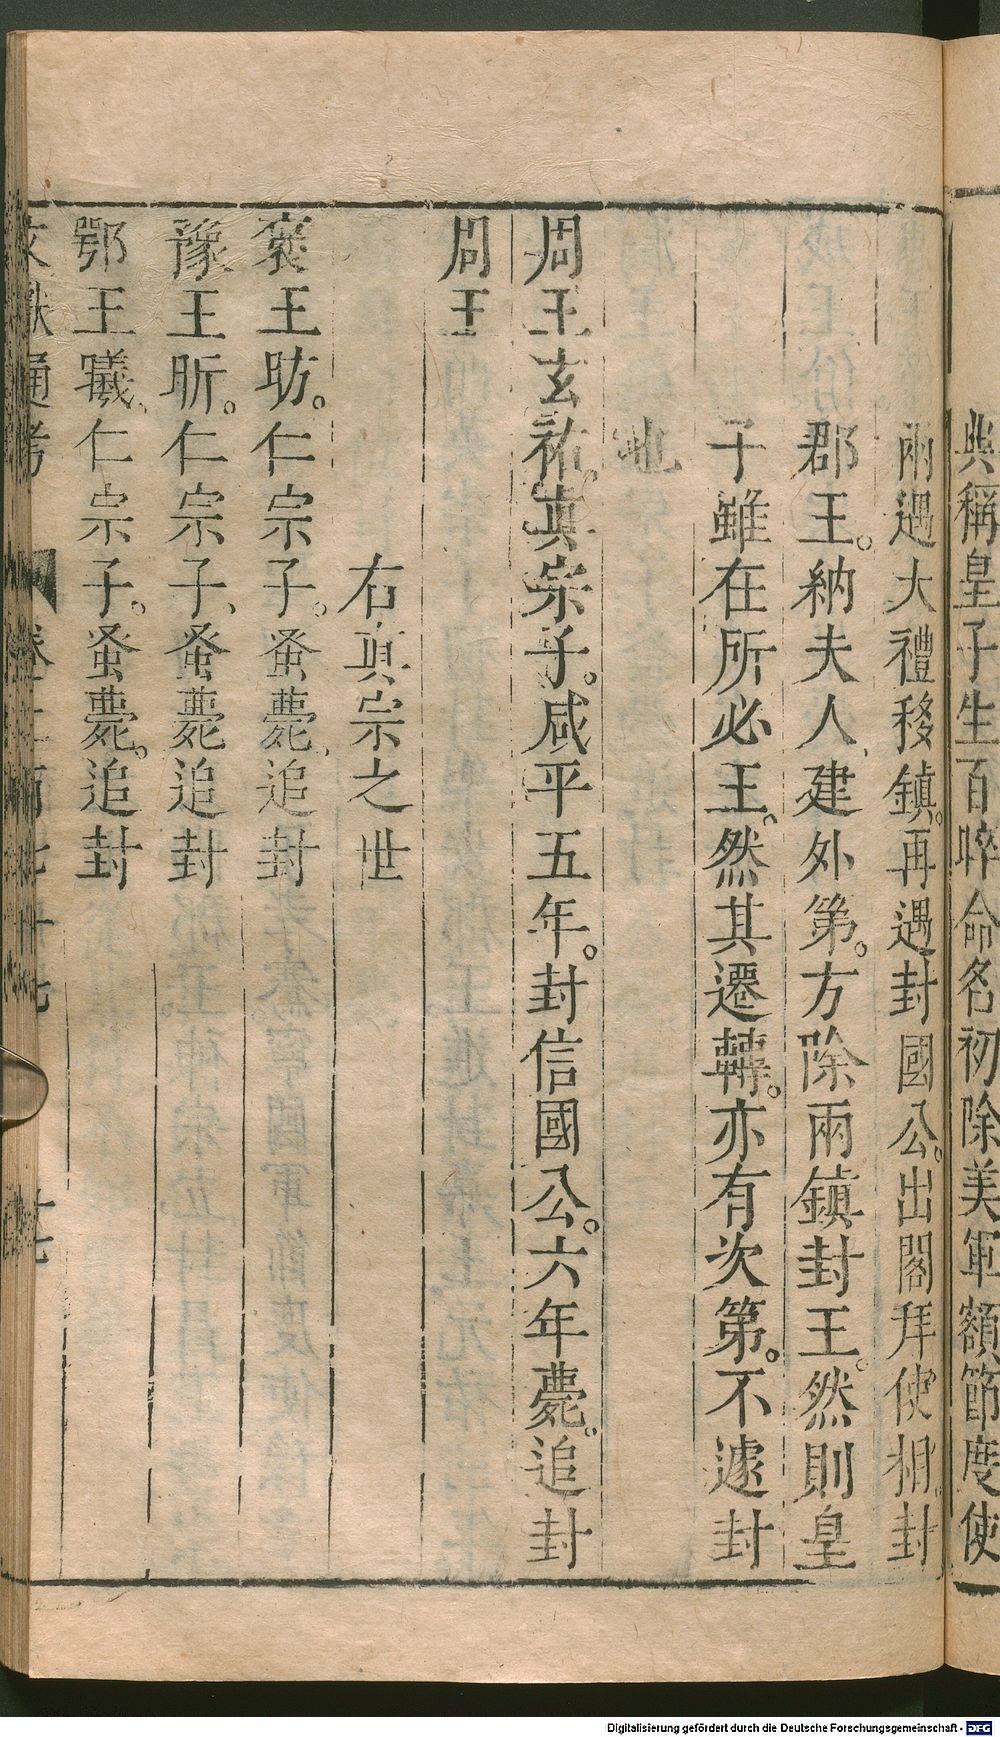 典稱皇子生百晬命名初除美軍額節度使
兩遇大禮移鎮。再遇封國公。出閣拜使相。封
郡王。納夫人、建外第。方除兩鎮封王。然則皇
子雖在所必王。然其遷轉。亦有次第。不遽封
也
周王玄祐。真宗子。咸平五年。封信國公。六年薨。追封
周王
右真宗之世
褒王昉。仁宗子。蚤薨、追封
豫王昕。仁宗子、蚤薨追封
鄂王曦。仁宗子。蚤薨。追封
文獻通考 卷二百七十七 十七
Digitalisierung gefördert durch die Deutsche Forschungsgemeinschaft - DFG